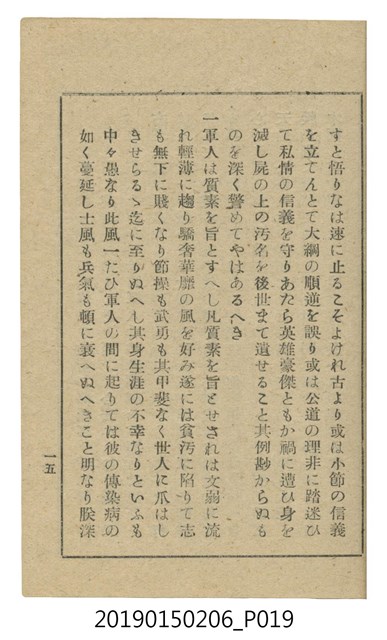 すと悟りなは速に止るこそよけれ古より或は小節の信義
を立てんとて大綱の順逆を誤り或は公道の理非に踏迷ひ
て私情の信義を守りあたら英雄豪傑ともか禍に遭ひ身を
滅し屍の上の汚名を後世まて遺せること其例尠からぬも
のを深く警めてやはあるへき
一軍人は質素を旨とすへし凡質素を旨とせされは文弱に流
れ輕薄に趨り驕奢華靡の風を好み遂には貧汚に陷りて志
も無下に賤くなり節操も武勇も其甲斐なく世人に爪はし
きせらるゝ迄に至りぬへし其身生涯の不幸なりといふも
中々愚なり此風一たひ軍人の間に起りては彼の傳染病の
如く蔓延し士風も兵氣も頓に衰へぬへきこと明なり朕深
一五
20190150206_P019